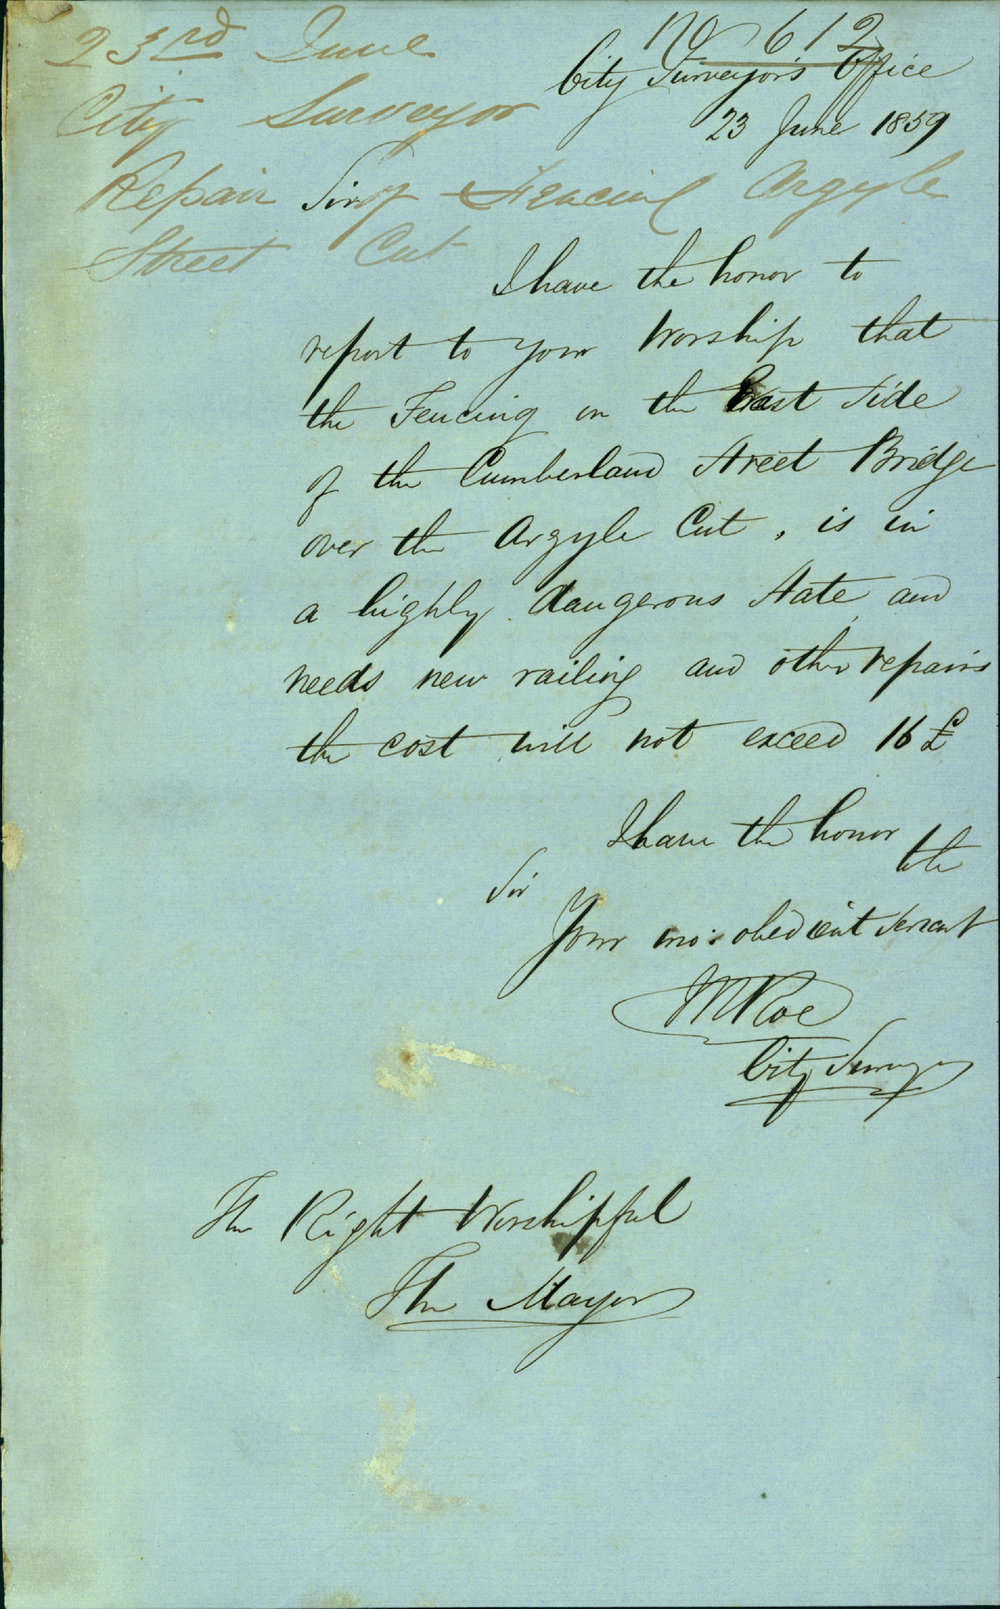 No 612
23rd June
City Surveyor
Repair of Fencing Argyle
Street Cut
City Surveyor's Office
23 June 1859
Sir
I have the honor to
report to your Worship that
the Fencing on the East Side
of the Cumberland Street Bridge
over the Argyle Cut, is in
a highly dangerous State, and
needs new railing and other repairs
the cost will not exceed 16£
I have the honor
to be
Sir
Your mo: obedient Servant
City Surveyor
The Right Worshipful
The Mayor